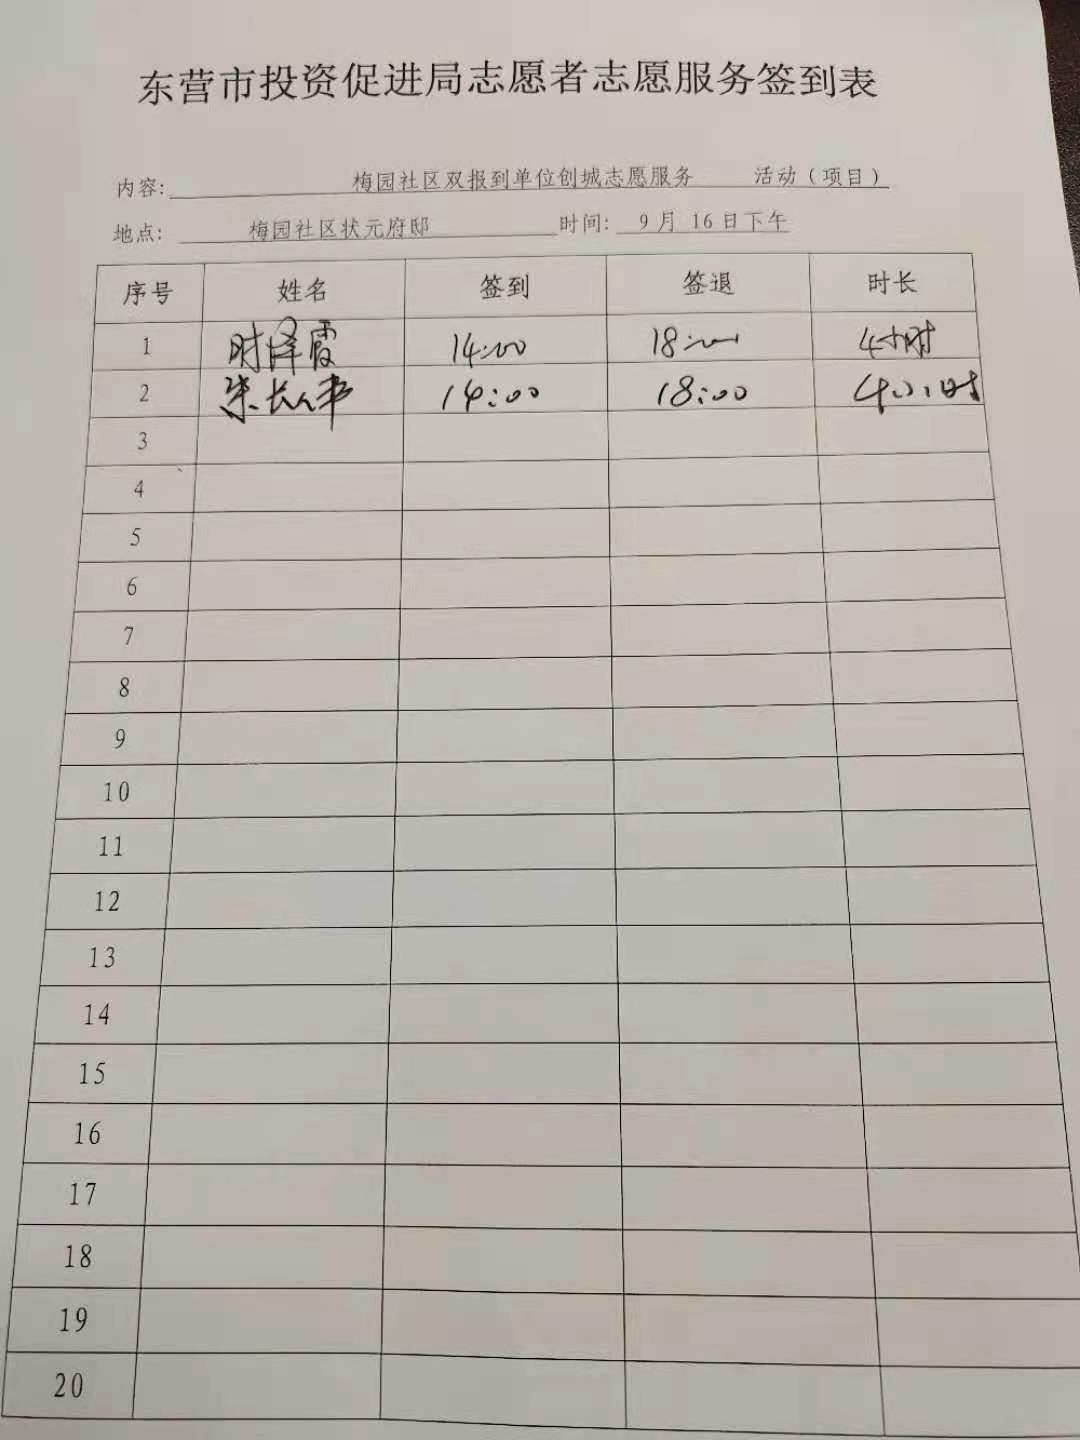 东营市投资促进局志愿者志愿服务签到表
内容: 梅园社区双报到单位创城志愿服务 活动（项目）
地点: 梅园社区状元府邸 时间: 9月 16日下午
序号 姓名 签到 签退 时长
1 时泽霞 14:00 18:00 4小时
2 14:00 18:00 4小时
3
4
5
6
7
8
9
10
11
12
13
14
15
16
17
18
19
20